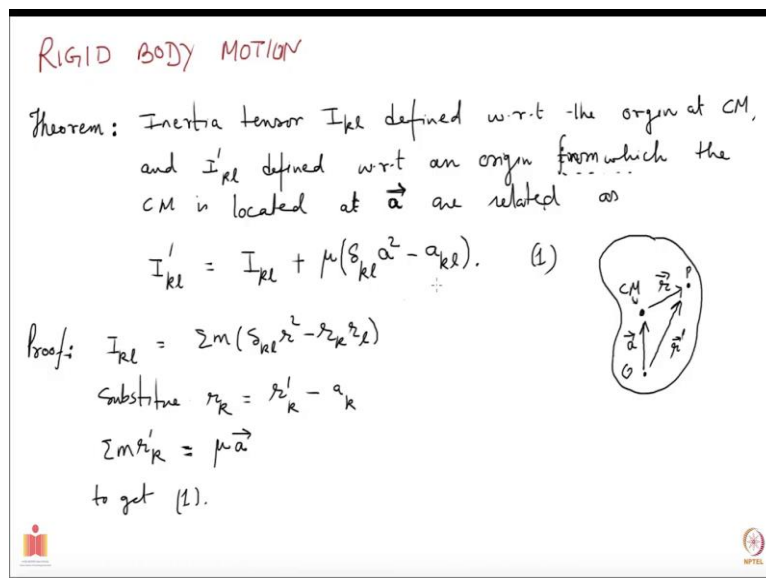 RIGID BODY MOTION
Theorem: Inertia tensor I_kl defined w.r.t the orgin at CM,
and I'_kl defined w.r.t an origin from which the
CM is located at a⃗ are related as
I'_kl = I_kl + μ(δ_kl a² - a_kl). (1)
CM
r⃗
P
a⃗
r⃗'
O
Proof: I_kl = Σm(δ_kl r² - r_k r_l)
Substitue r_k = r'_k - a_k
Σm r'_k = μa⃗
to get (1).
NPTEL